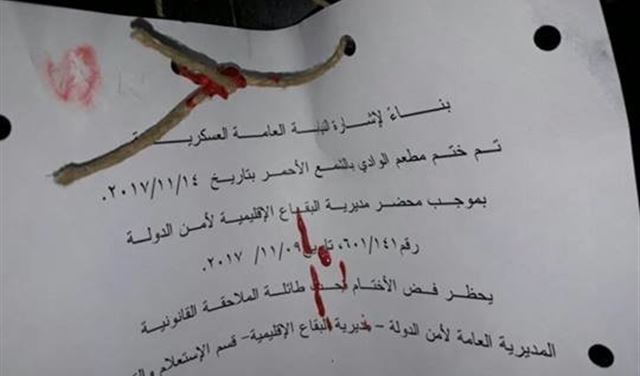 بناءً لإشارة النيابة العامة العسكرية
تم ختم مطعم الوادي بالشمع الأحمر بتاريخ ٢٠١٧/١١/١٤.
بموجب محضر مديرية البقاع الإقليمية لأمن الدولة
رقم ٦٠١/١٤١، تاريخ ٢٠١٧/١١/٠٩.
يحظر فض الأختام تحت طائلة الملاحقة القانونية
المديرية العامة لأمن الدولة - مديرية البقاع الإقليمية - قسم الإستعلام